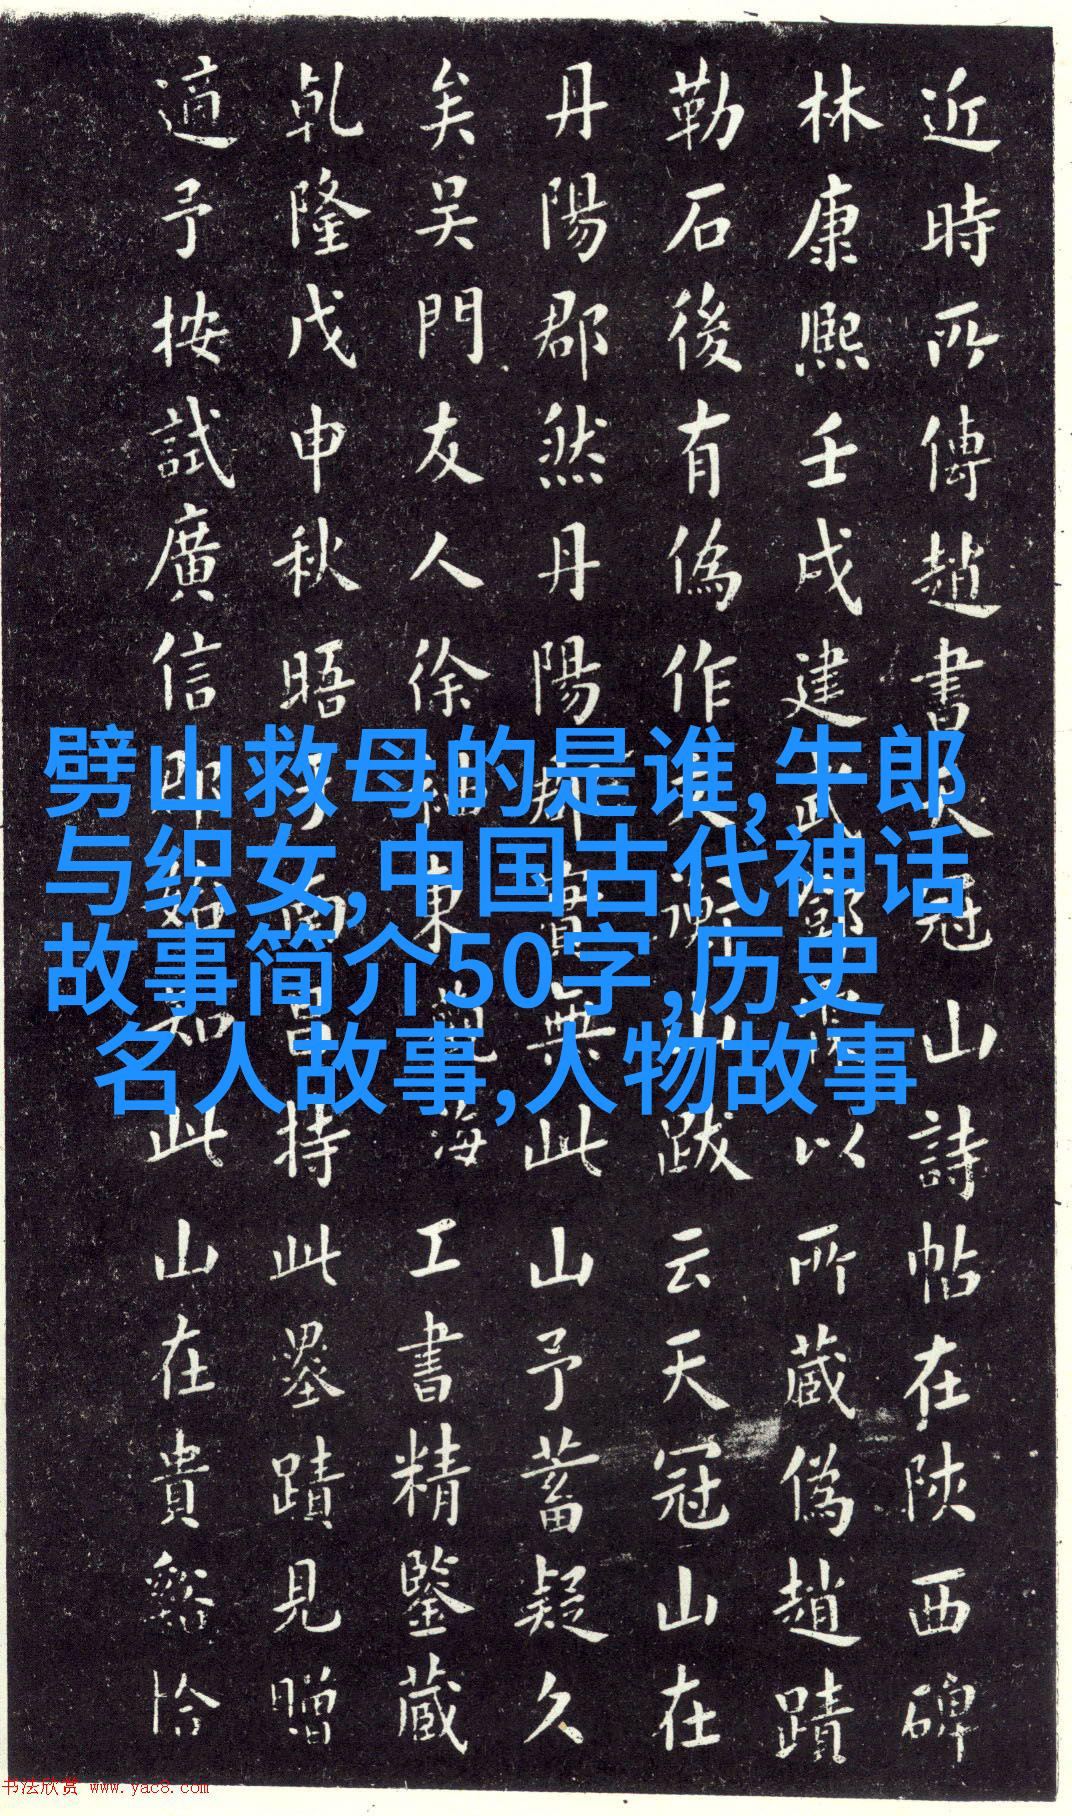 近時所傳趙書天冠山詩帖在陝西碑
林康熙壬戌建武鄧以所藏偽趙蹟
勒石後有偽作文衡山跋云天冠山在
丹陽郡然丹陽郡實無此山予蓄疑久
矣吳門友人徐東海工書精鑒藏
乾隆戊申秋晤于南昌持此墨蹟見贈
適予按試廣信即知此山在貴谿恰
劈山救母的是谁,牛郎
与织女,中国古代神话
故事简介50字,历史
名人故事,人物故事
书法欣赏 www.yac8.com